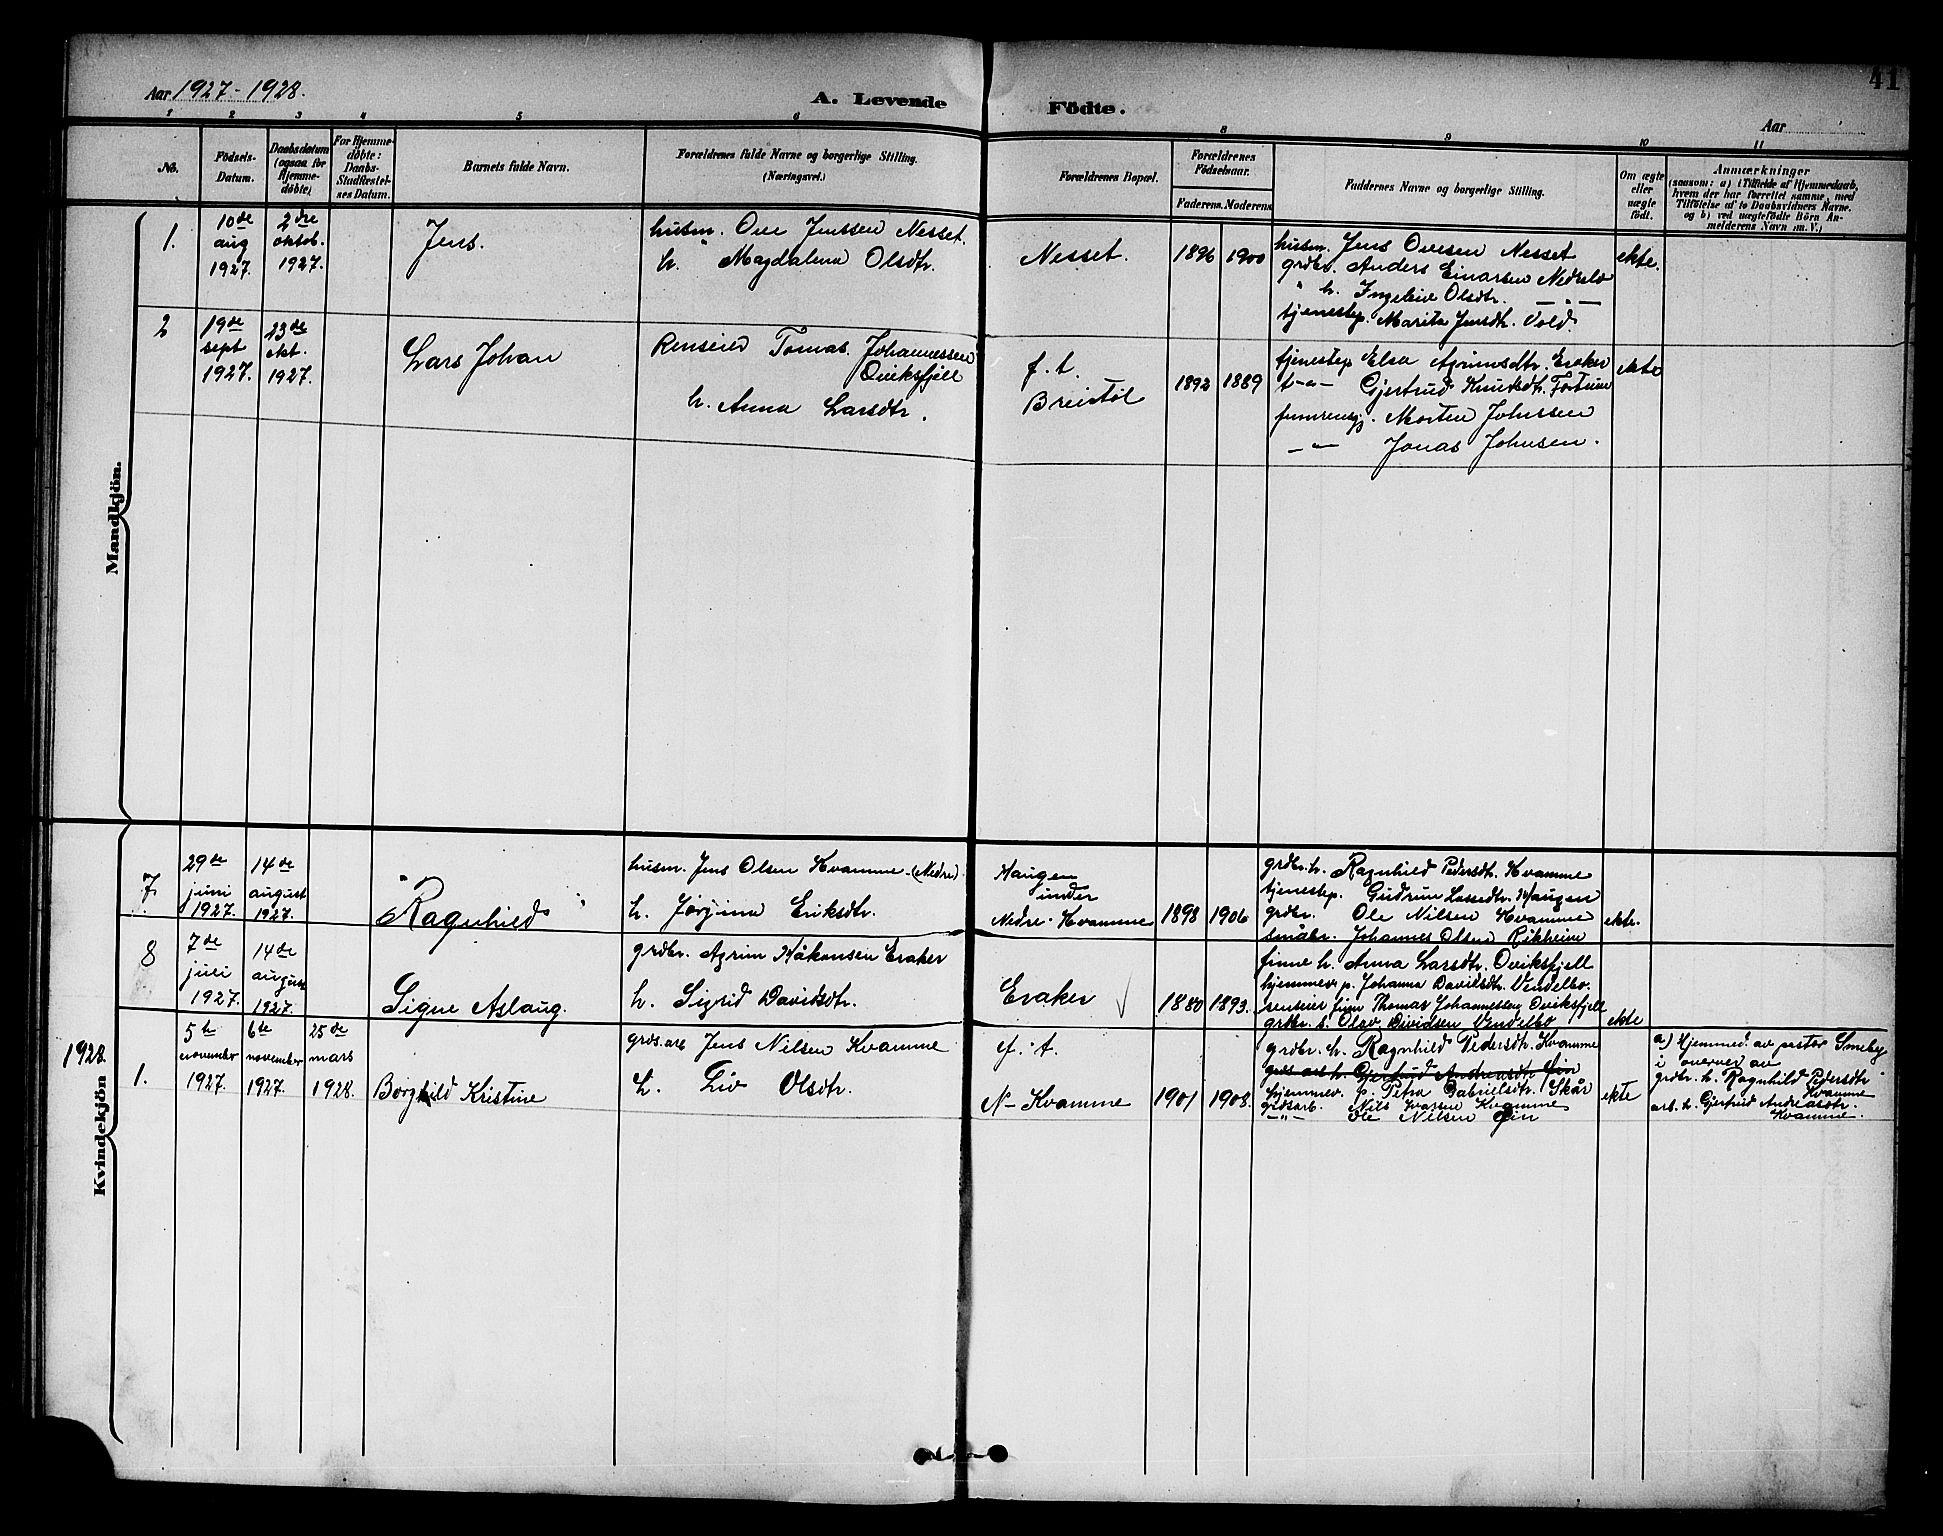 41
Aar 1927-1928.
A. Levende Födte.
Aar
1 2 3 4 5 6 8 9 10 11
No.
Födsels-
Datum.
Daabsdatum
(ogsaa for
Hjemme-
döbte)
For Hjemme-
döbte:
Daabs-
Stadfestel-
ses Datum.
Barnets fulde Navn.
Forældrenes fulde Navne og borgerlige Stilling.
(Næringsvei.)
Forældrenes Bopæl.
Forældrenes
Födselsaar.
Faderens. Moderens
Faddernes Navne og borgerlige Stilling.
Om ægte
eller
uægte
födt.
Anmærkninger
(saasom: a) i Tilfælde af Hjemmedaab,
hvem der har forrettet samme, med
Tilföielse af to Daabsvidners Navne.
og b) ved uægtefödte Börn An-
melderens Navn m. V.)
Mandkjön.
1.
10de
aug
1927.
2dre
oktob.
1927.
Jens.
husm. Ove Jenssen Nesset.
h. " Magdalena Olsdtr.
Nesset.
1896 1900
husm. Jens Ovesen Nesset
grdbr. Anders Einarsen Nedrelo
" h. Ingeleiv Olsdtr. — " —
tjenestep. Marita Jensdtr. Vold.
ekte.
2
19de
sept
1927.
23de
okt.
1927.
Lars Johan
Reneier Tomas Johannessen
Oviksfjell
h. Anna Larsdtr.
f. t.
Breistöl
1892 1889
tjenestep Elsa Agrimsdtr. Eraker
t—a— Gjertrud Knutsdtr. Fortun
Morten Johnsen
— " — Jonas Johnsen.
ekte
Kvindekjön
7.
29de
juni
1927.
14de
august
1927.
Ragnhild
husm. Jens Olsen Kvamme (Nedre)
h. Jørgina Eriksdtr.
Haugen
under
Nedre-Kvamme
1898 1906
grdbr. h. Ragnhild Pedersdtr. Kvamme
tjenestep. Gudrun Lassedtr. Haugen
grdbr. Ole Nilsen Kvamme
småbr. Johannes Olsen Rikheim
ekte.
8
7de
juli
1927.
14de
august
1927.
Signe Aslaug.
grdbr. Agrim Håkonsen Eraker
h. Sigrid Davidsdtr.
Eraker
1880 1893.
finne h. Anna Larsdtr. Oviksfjell
hjemmev p. Johanna Davidsdtr. Vendelbo.
reneier finn Thomas Johannessen Oviksfjell
grdbr. s. Olav Davidsen Vendelbo
ekte
1928
1.
5te
november
1927.
6te
november
1927.
25de
mars
1928.
Borghild Kristine
grds.arb Jens Nilsen Kvamme
h. Liv Olsdtr.
f. t.
N- Kvamme
1901 1908.
grdbr. h. Ragnhild Pedersdtr. Kvamme
grds arb h. Gjertrud Andreasdtr Gin
hjemmev. p. Petra Gabrielsdtr. Skår
grdsarb. Nils Kvamme
— " — Ole Nilsen Gin
ekte
a) Hjemmed. av pastor Smeby
i nærver av
grdbr. h. Ragnhild Pedersdtr
Kvamme
arb. h. Gjertrud Andreasdtr.
Kvamme.